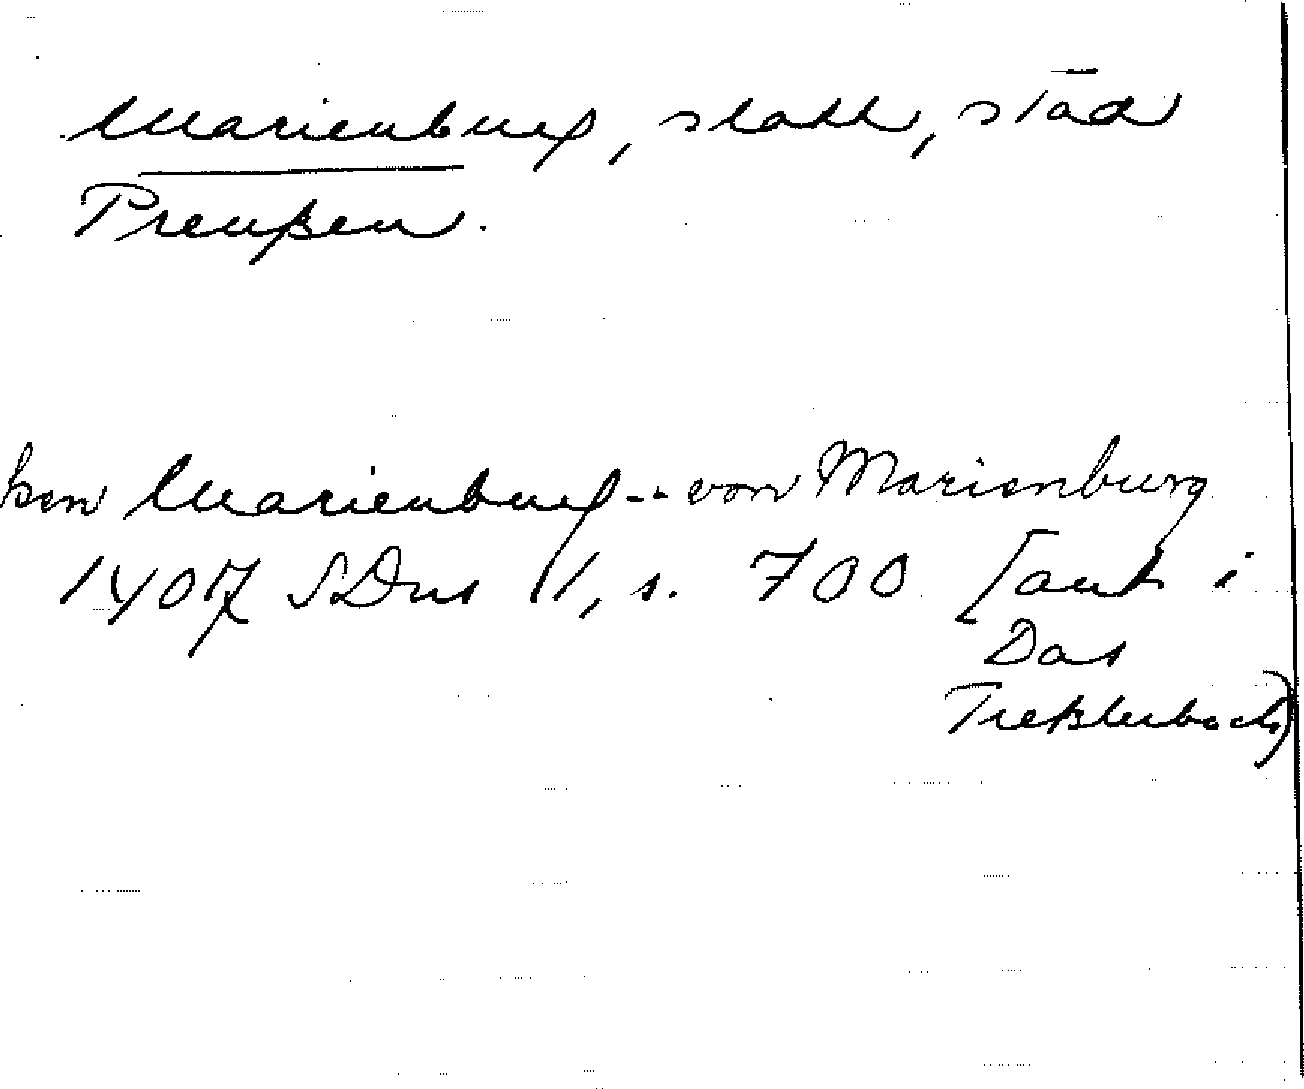 Marienburg, slott, stad
Preußen.
ken Marienburg -- von Marienburg
1407 SDns II, s. 700 [ant i
Das
Treßlerboch)